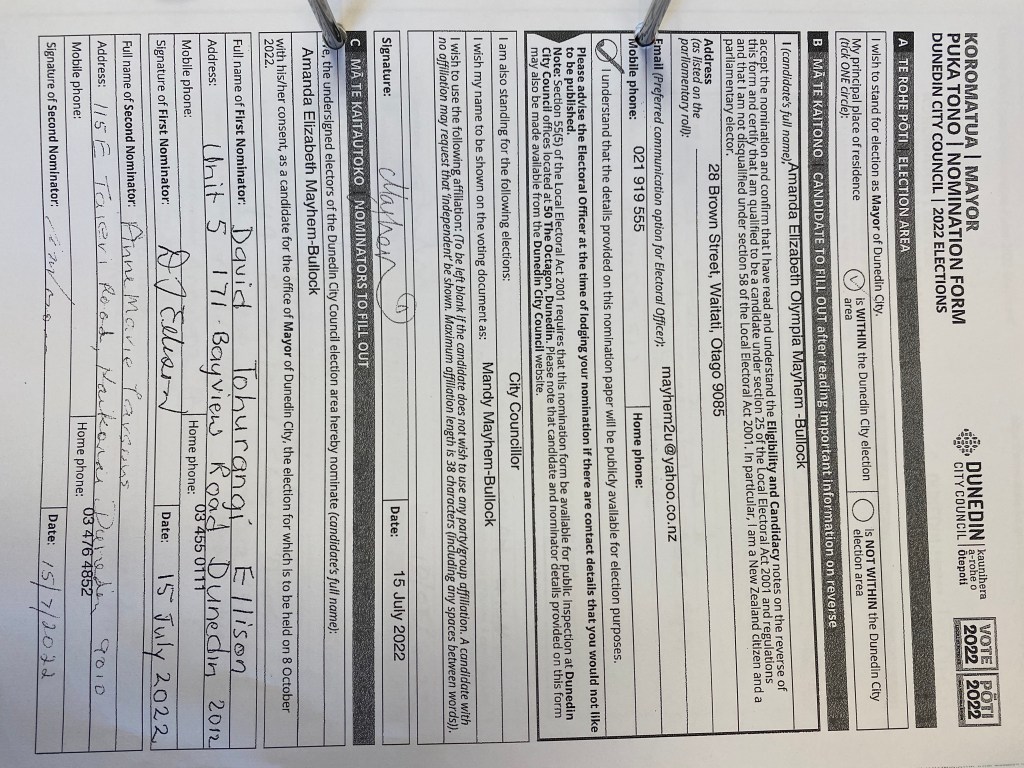 KOROMATUA | MAYOR
PUKA TONO | NOMINATION FORM
DUNEDIN CITY COUNCIL | 2022 ELECTIONS
DUNEDIN CITY COUNCIL | kaunihera a-rohe o Ōtepoti
VOTE 2022 PŌTI 2022
A TE ROHE PŌTI | ELECTION AREA
I wish to stand for election as Mayor of Dunedin City.
My principal place of residence
(tick ONE circle):
is WITHIN the Dunedin City election
area
is NOT WITHIN the Dunedin City
election area
B MĀ TE KAITONO | CANDIDATE TO FILL OUT after reading important information on reverse
I (candidate's full name), Amanda Elizabeth Olympia Mayhem -Bullock
accept the nomination and confirm that I have read and understand the Eligibility and Candidacy notes on the reverse of
this form and certify that I am qualified to be a candidate under section 25 of the Local Electoral Act 2001 and regulations
and that I am not disqualified under section 58 of the Local Electoral Act 2001. In particular, I am a New Zealand citizen and a
parliamentary elector.
Address
(as listed on the
parliamentary roll):
28 Brown Street, Waitati, Otago 9085
Email (Preferred communication option for Electoral Officer): mayhem2u@yahoo.co.nz
Mobile phone: 021 919 555 Home phone:
I understand that the details provided on this nomination paper will be publicly available for election purposes.
Please advise the Electoral Officer at the time of lodging your nomination if there are contact details that you would not like
to be published.
Note: Section 55(5) of the Local Electoral Act 2001 requires that this nomination form be available for public inspection at Dunedin
City Council offices located at 50 The Octagon, Dunedin. Please note that candidate and nominator details provided on this form
may also be made available from the Dunedin City Council website.
I am also standing for the following elections: City Councillor
I wish my name to be shown on the voting document as: Mandy Mayhem-Bullock
I wish to use the following affiliation: (To be left blank if the candidate does not wish to use any party/group affiliation. A candidate with
no affiliation may request that Independent be shown. Maximum affiliation length is 38 characters (including any spaces between words)).
Signature: Date: 15 July 2022
C MĀ TE KAITAUTOKO | NOMINATORS TO FILL OUT
We, the undersigned electors of the Dunedin City Council election area hereby nominate (candidate's full name):
Amanda Elizabeth Mayhem-Bullock
with his/her consent, as a candidate for the office of Mayor of Dunedin City, the election for which is to be held on 8 October
2022.
Full name of First Nominator: David Tohurangi Ellison
Address: Unit 5 171 Bayview Road Dunedin 9012
Mobile phone: Home phone: 03 455 0111
Signature of First Nominator: DT Ellison Date: 15 July 2022
Full name of Second Nominator: Anne Marie Parsons
Address: 115E Taieri Road, Dunedin 9010
Mobile phone: Home phone: 03 476 4852
Signature of Second Nominator: Date: 15/7/2022